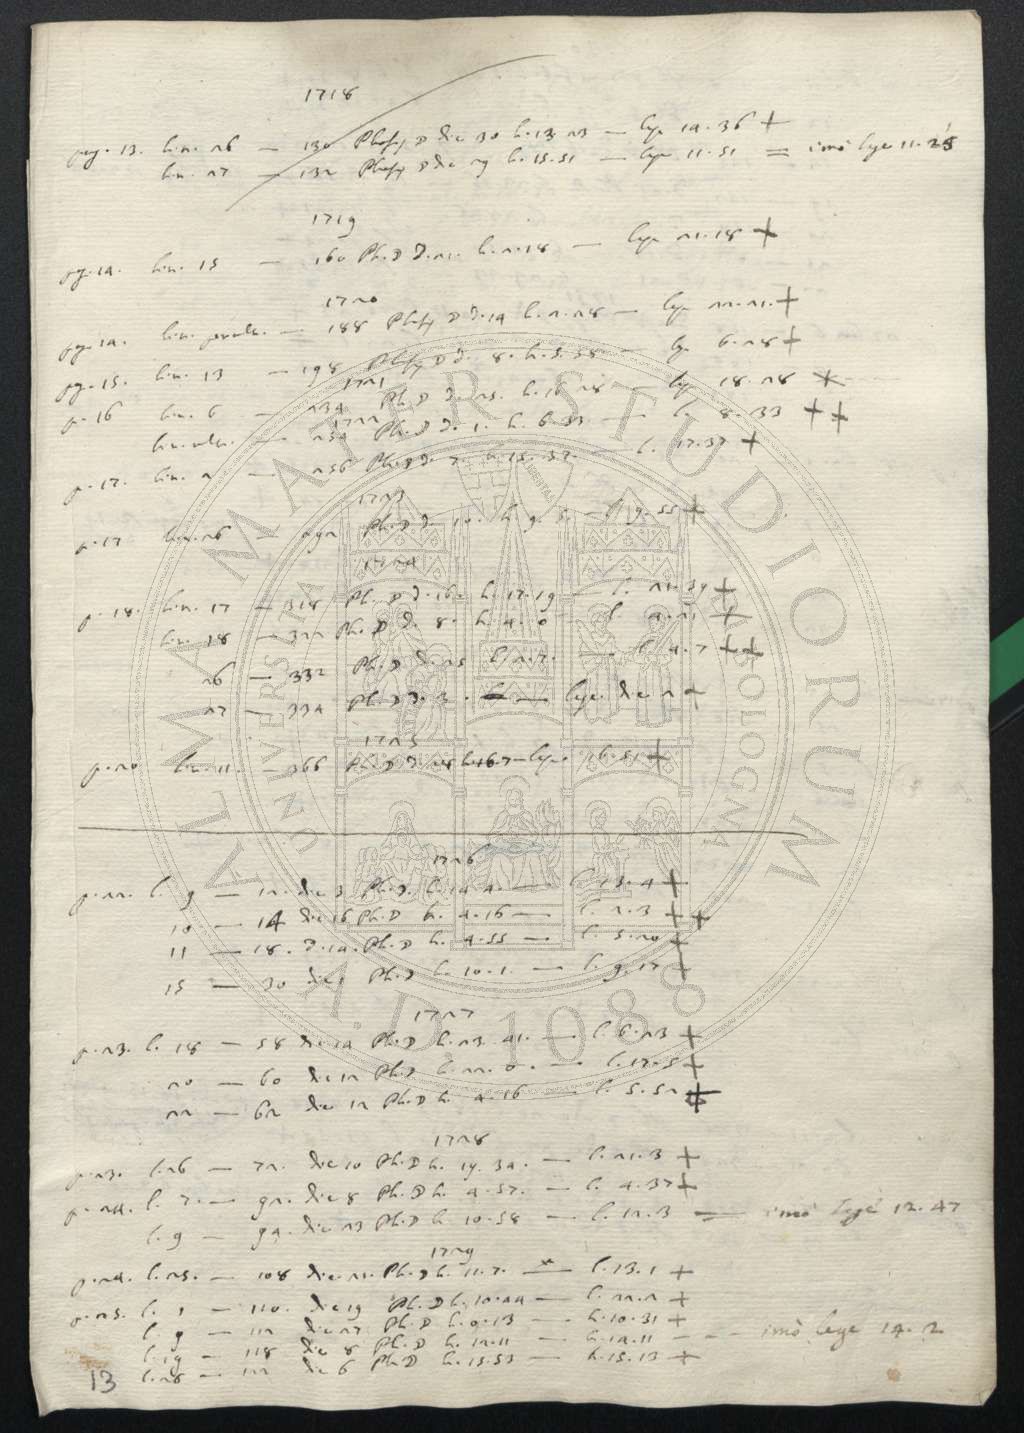 1718
pag. 13. lin. 26 — 130 Phosp D die 30 h. 13. 23 — lege 14.36 +
lin. 27 — 132 Phosp D die 29 h. 15.51 — lege 11.51 = imò lege 11.25
1719
pag. 14. lin. 15 — 160 Ph. D d. 21. h. 2.18 — lege 21.18 +
1720
pag. 14. lin. penult. — 188 Phosp D d. 14 h. 2.28 — lege 22.21. +
pag. 15. lin. 13 — 198 Phosp D d. 8. h. 5.58 — lege 6.28 +
1721
p. 16 lin. 6 — 234 Ph. D d. 25. h. 16 28 — lege 18.28 +
1722
lin. ult. — 254 Ph. D d. 1. h. 6.33 — l. 8.33 + +
p. 17. lin. 2 — 256 Ph. D d. 7. h. 15.37. — l. 17.37 +
1723
p. 17 lin. 26 — 292 Ph. D d. 10. h. 9. — l. 19.55 +
1724
p. 18. lin. 17 — 318 Ph. D d. 16. h. 17.19 — l. 21.39 +
lin. 18 — 322 Ph. D d. 8. h. 4.0 — l. 4.21 +
26 — 332 Ph. D d. 25 h. 2.7. — l. 4.7 + +
27 — 334 Ph. D d. 3. — lege die 2 +
1725
p. 20 lin. 11. — 366 Ph. D d. 28 h. 16.7 — lege 16.51 +
1726
p. 22. l. 9 — 12. die 3 Ph. D. h. 14 4. — l. 13.4 +
10 — 14 die 16 Ph. D h. 4.16 — l. 2.3 + +
11 — 18. d. 14. Ph. D h. 4.55 — l. 5.20 +
15 — 30 die 1 Ph. D h. 10.1. — l. 9.17 +
1727
p. 23. l. 18 — 58 die 14 Ph. D h. 23.41. — l. 6.23 +
20 — 60 die 12 Ph. D h. 22.0. — l. 17.5 +
22 — 62 die 12 Ph. D h. 4.16 — l. 5.52 +
1728
p. 23. l. 26 — 72. die 10 Ph. D h. 19.34. — l. 21.3 +
p. 24. l. 7. — 92. die 8 Ph. D h. 4.57. — l. 4.37 +
l. 9 — 94. die 23 Ph. D h. 10.58 — l. 12.3 = imò lege 12.47
1729
p. 24. l. 25. — 108 die 21. Ph. D h. 11.7. — l. 13.1 +
p. 25. l. 1 — 110. die 19 Ph. D h. 10.44 — l. 22.2 +
l. 9 — 112 die 27 Ph. D h. 0.13 — h. 10.31 +
l. 19 — 118 die 8 Ph. D h. 12.11 — h. 14.11 — — imò lege 14.2
l. 28 — 122 die 6 Ph. D h. 13.53 — h. 15.13 +
13
ALMA MATER STUDIORUM
UNIVERSITÀ DI BOLOGNA
A.D. 1088